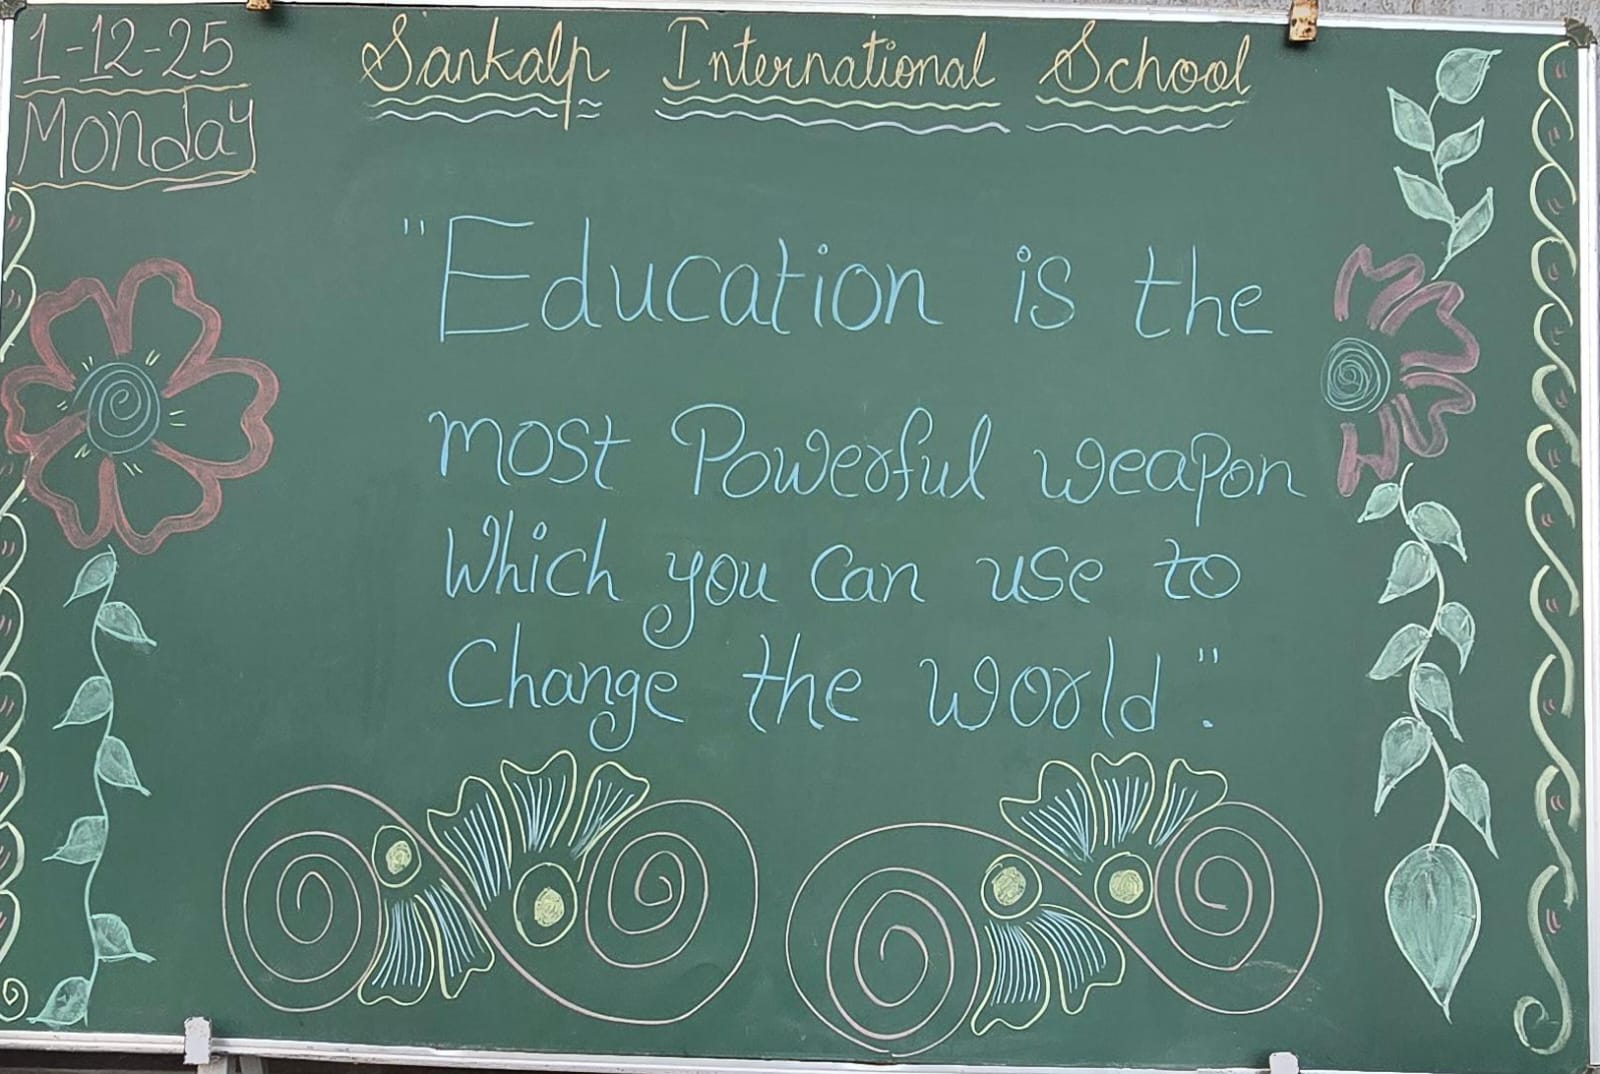 1-12-25
Monday
Sankalp International School
"Education is the
most Powerful weapon
Which you Can use to
Change the World".